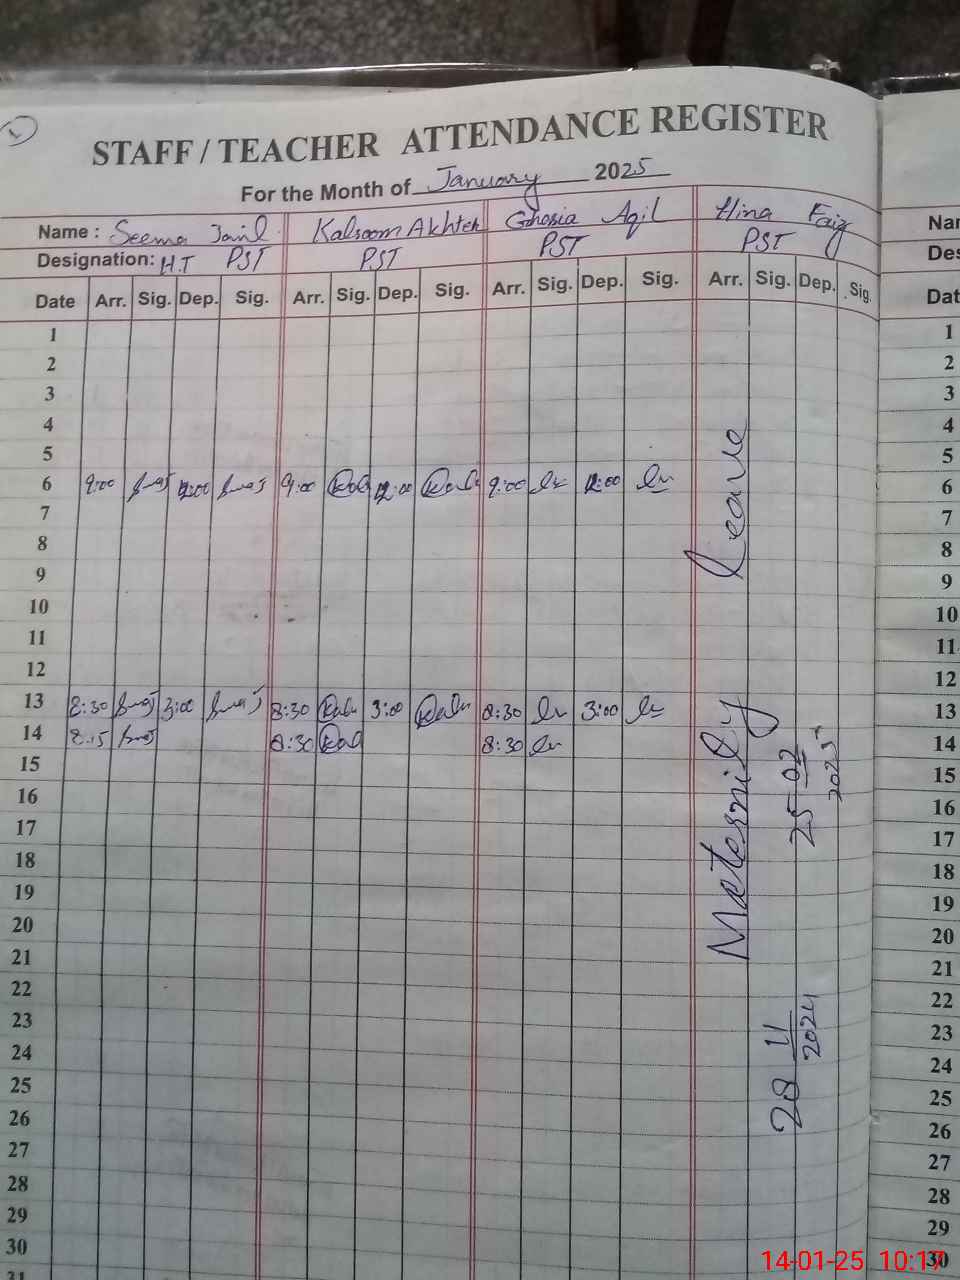 1
STAFF / TEACHER ATTENDANCE REGISTER
For the Month of January 2025
Name : Seema Jamil Kalsoom Akhter Ghosia Aqil Hina Faiz Nam
Designation: H.T PST PST PST PST Des
Date Arr. Sig. Dep. Sig. Arr. Sig. Dep. Sig. Arr. Sig. Dep. Sig. Arr. Sig. Dep. Sig. Dat
1 1
2 2
3 3
4 4
5 5
6 9:00 12:00 9:00 Kal 12:00 Kal 9:00 12:00 6
7 7
8 8
9 9
10 10
11 11
12 12
13 8:30 3:00 8:30 Kal 3:00 Kal 8:30 3:00 13
14 8:15 8:30 Kal 8:30 14
15 15
16 16
17 17
18 18
19 19
20 20
21 21
22 22
23 23
24 24
25 25
26 26
27 27
28 28
29 29
30 30
31
Maternity Leave
28 11 2024
25 02 2025
14-01-25 10:17